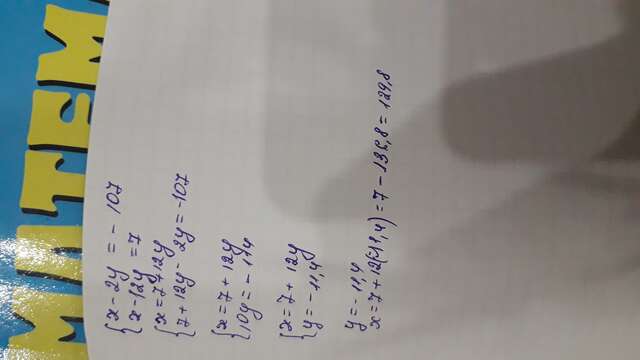 МАТЕМ
{ x - 2y = - 107
x - 12y = 7
{ x = 7 + 12y
7 + 12y - 2y = -107
{ x = 7 + 12y
10y = - 114
{ x = 7 + 12y
y = - 11,4
y = - 11,4
x = 7 + 12(-11,4) = 7 - 136,8 = 129,8